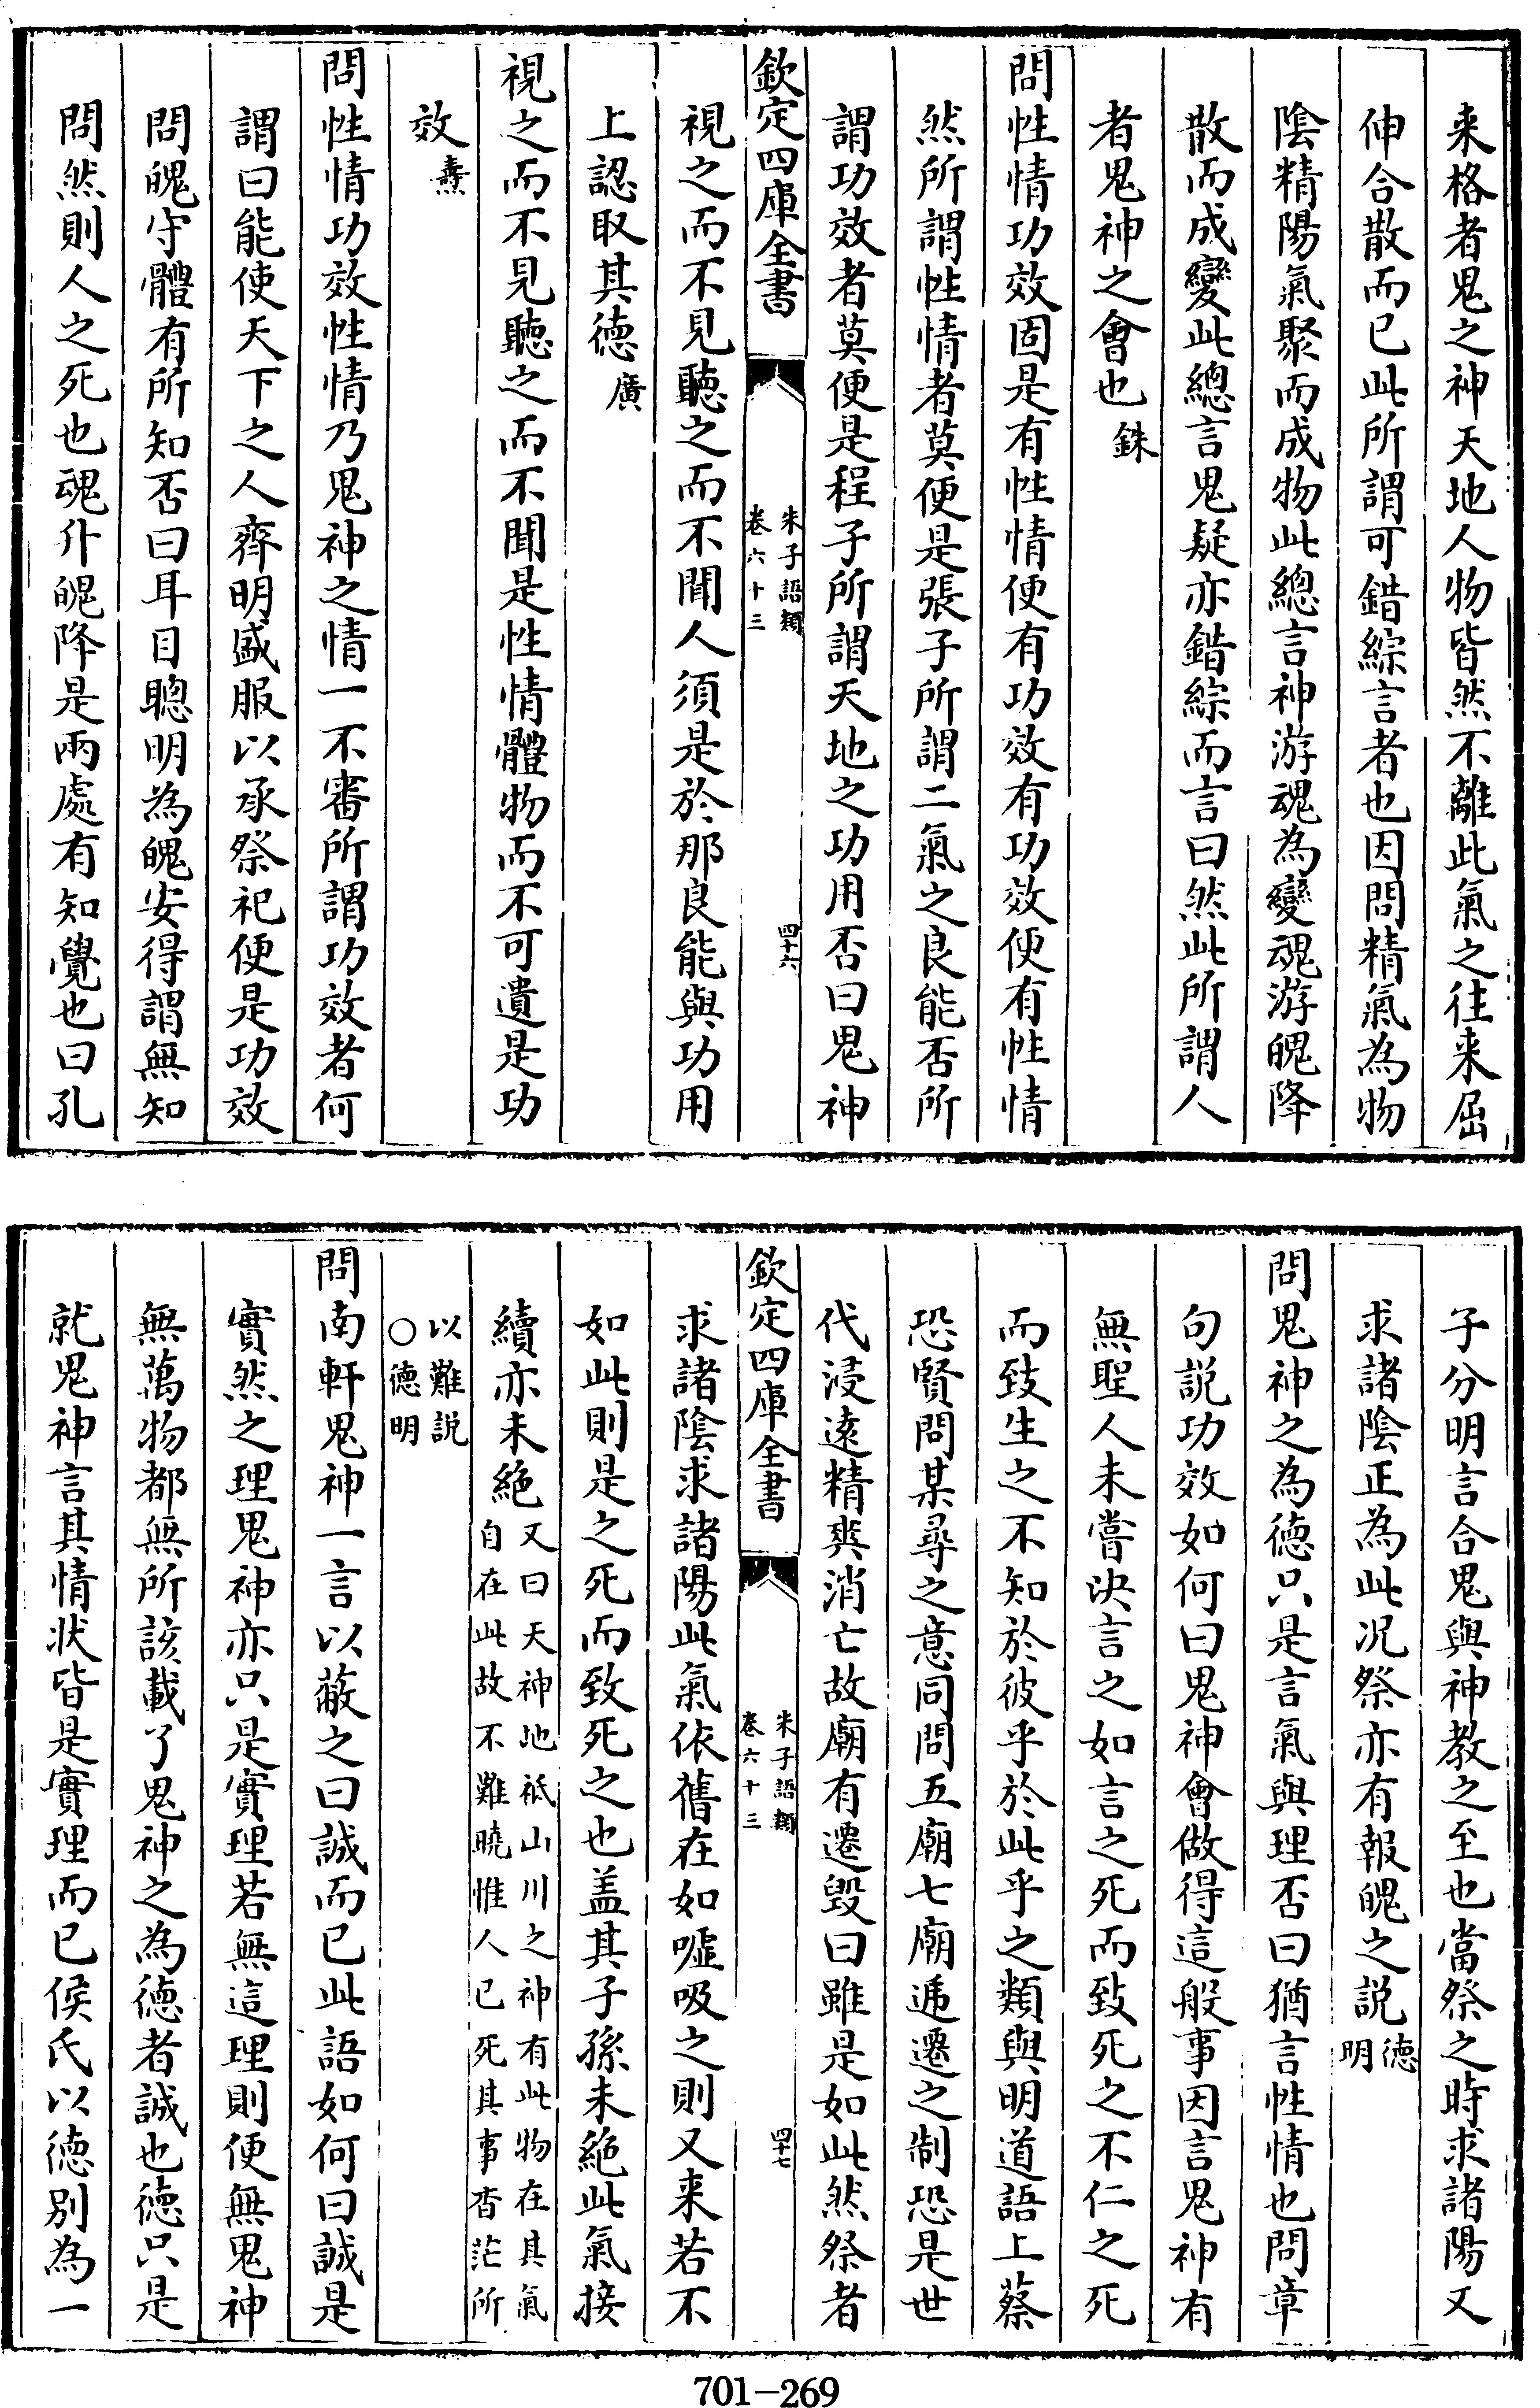 来格者鬼之神天地人物皆然不離此氣之往来屈
伸合散而已此所謂可錯綜言者也因問精氣為物
陰精陽氣聚而成物此總言神游魂為變魂游魄降
散而成變此總言鬼疑亦錯綜而言曰然此所謂人
者鬼神之會也銖
問性情功效固是有性情便有功效有功效便有性情
然所謂性情者莫便是張子所謂二氣之良能否所
謂功效者莫便是程子所謂天地之功用否曰鬼神
欽定四庫全書
朱子語類
卷六十三
四十六
視之而不見聽之而不聞人須是於那良能與功用
上認取其德廣
視之而不見聽之而不聞是性情體物而不可遺是功
效燾
問性情功效性情乃鬼神之情一不審所謂功效者何
謂曰能使天下之人齊明盛服以承祭祀便是功效
問魄守體有所知否曰耳目聰明為魄安得謂無知
問然則人之死也魂升魄降是兩處有知覺也曰孔
子分明言合鬼與神教之至也當祭之時求諸陽又
求諸陰正為此况祭亦有報魄之説德明
問鬼神之為德只是言氣與理否曰猶言性情也問章
句説功效如何曰鬼神會做得這般事因言鬼神有
無聖人未嘗決言之如言之死而致死之不仁之死
而致生之不知於彼乎於此乎之類與明道語上蔡
恐賢問某尋之意同問五廟七廟遞遷之制恐是世
代浸遠精爽消亡故廟有遷毀曰雖是如此然祭者
欽定四庫全書
朱子語類
卷六十三
四十七
求諸陰求諸陽此氣依舊在如噓吸之則又来若不
如此則是之死而致死之也盖其子孫未絶此氣接
續亦未絶又曰天神地祇山川之神有此物在其氣
自在此故不難曉惟人已死其事杳茫所
以難説
○德明
問南軒鬼神一言以蔽之曰誠而已此語如何曰誠是
實然之理鬼神亦只是實理若無這理則便無鬼神
無萬物都無所該載了鬼神之為德者誠也德只是
就鬼神言其情状皆是實理而已侯氏以德別為一
701-269